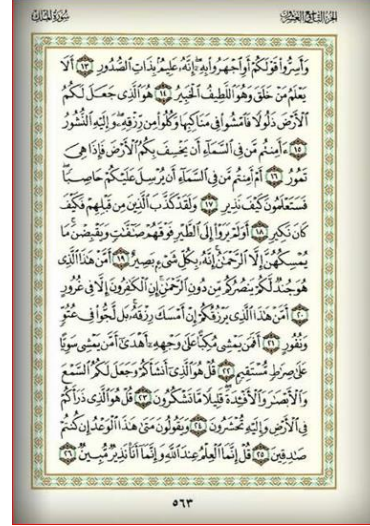 سُورَةُ المُلْكِ
الجزء التاسع والعشرون
وَأَسِرُّوا۟ قَوْلَكُمْ أَوِ ٱجْهَرُوا۟ بِهِۦٓ إِنَّهُۥ عَلِيمٌۢ بِذَاتِ ٱلصُّدُورِ ١٣ أَلَا
يَعْلَمُ مَنْ خَلَقَ وَهُوَ ٱللَّطِيفُ ٱلْخَبِيرُ ١٤ هُوَ ٱلَّذِى جَعَلَ لَكُمُ
ٱلْأَرْضَ ذَلُولًا فَٱمْشُوا۟ فِى مَنَاكِبِهَا وَكُلُوا۟ مِن رِّزْقِهِۦ وَإِلَيْهِ ٱلنُّشُورُ
١٥ ءَأَمِنتُم مَّن فِى ٱلسَّمَآءِ أَن يَخْسِفَ بِكُمُ ٱلْأَرْضَ فَإِذَا هِىَ
تَمُورُ ١٦ أَمْ أَمِنتُم مَّن فِى ٱلسَّمَآءِ أَن يُرْسِلَ عَلَيْكُمْ حَاصِبًا
فَسَتَعْلَمُونَ كَيْفَ نَذِيرِ ١٧ وَلَقَدْ كَذَّبَ ٱلَّذِينَ مِن قَبْلِهِمْ فَكَيْفَ
كَانَ نَكِيرِ ١٨ أَوَلَمْ يَرَوْا۟ إِلَى ٱلطَّيْرِ فَوْقَهُمْ صَٰٓفَّٰتٍ وَيَقْبِضْنَ مَا
يُمْسِكُهُنَّ إِلَّا ٱلرَّحْمَٰنُ إِنَّهُۥ بِكُلِّ شَىْءٍۭ بَصِيرٌ ١٩ أَمَّنْ هَٰذَا ٱلَّذِى
هُوَ جُندٌ لَّكُمْ يَنصُرُكُم مِّن دُونِ ٱلرَّحْمَٰنِ إِنِ ٱلْكَٰفِرُونَ إِلَّا فِى غُرُورٍ
٢٠ أَمَّنْ هَٰذَا ٱلَّذِى يَرْزُقُكُمْ إِنْ أَمْسَكَ رِزْقَهُۥ بَل لَّجُّوا۟ فِى عُتُوٍّ
وَنُفُورٍ ٢١ أَفَمَن يَمْشِى مُكِبًّا عَلَىٰ وَجْهِهِۦٓ أَهْدَىٰٓ أَمَّن يَمْشِى سَوِيًّا
عَلَىٰ صِرَٰطٍ مُّسْتَقِيمٍ ٢٢ قُلْ هُوَ ٱلَّذِىٓ أَنشَأَكُمْ وَجَعَلَ لَكُمُ ٱلسَّمْعَ
وَٱلْأَبْصَٰرَ وَٱلْأَفْـِٔدَةَ قَلِيلًا مَّا تَشْكُرُونَ ٢٣ قُلْ هُوَ ٱلَّذِى ذَرَأَكُمْ
فِى ٱلْأَرْضِ وَإِلَيْهِ تُحْشَرُونَ ٢٤ وَيَقُولُونَ مَتَىٰ هَٰذَا ٱلْوَعْدُ إِن كُنتُمْ
صَٰدِقِينَ ٢٥ قُلْ إِنَّمَا ٱلْعِلْمُ عِندَ ٱللَّهِ وَإِنَّمَآ أَنَا۠ نَذِيرٌ مُّبِينٌ ٢٦
٥٦٣